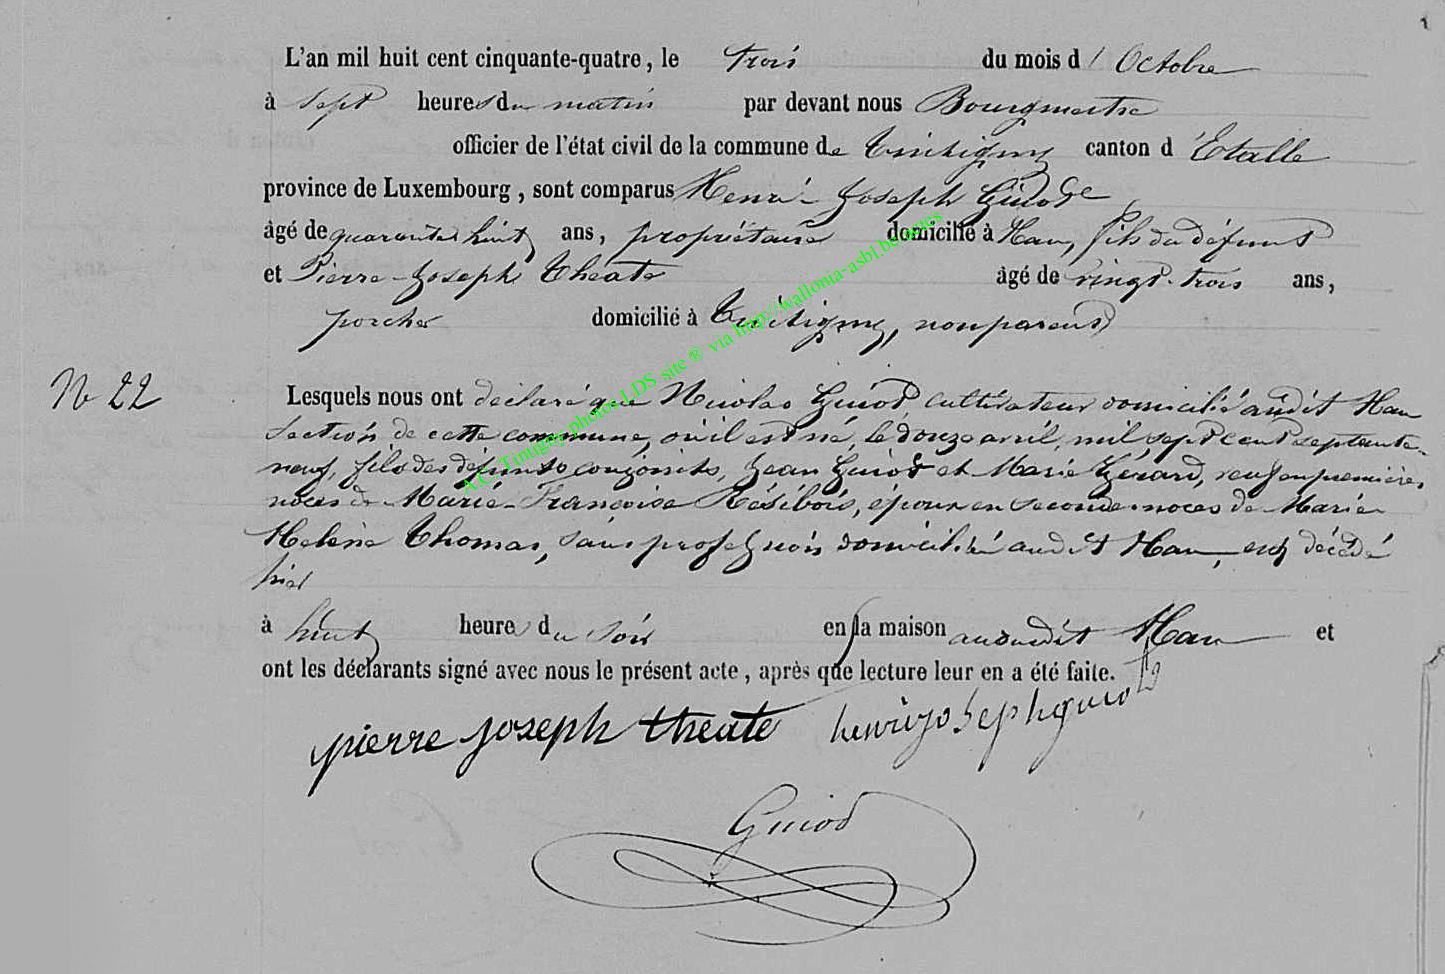 L'an mil huit cent cinquante-quatre, le trois du mois d'Octobre
à sept heures du matin par devant nous Bourgmestre
officier de l'état civil de la commune de Tintigny canton d'Etalle
province de Luxembourg, sont comparus Henri-Joseph Guiot
âgé de quarante huit ans, propriétaire domicilié à Han, fils du défunt
et Pierre-Joseph Theate âgé de vingt-trois ans,
porcher domicilié à Tintigny, non parent
N° 22
Lesquels nous ont déclaré que Nicolas Guiot, cultivateur domicilié audit Han
section de cette commune, où il est né, le douze avril mil sept cent septante-
neuf, fils des défunts conjoints, Jean Guiot et Marie Gérard, veuf en premières
noces de Marie-Françoise Résibois, époux en secondes noces de Marie
Helène Thomas, sans profession domiciliée audit Han, est décédé
hier
à huit heures du soir en la maison audit Han et
ont les déclarants signé avec nous le présent acte, après que lecture leur en a été faite.
pierre joseph theate henri joseph guiot
Guiot
A.C. Tintigny photos LDS site ® via http://wallonia-asbl.be